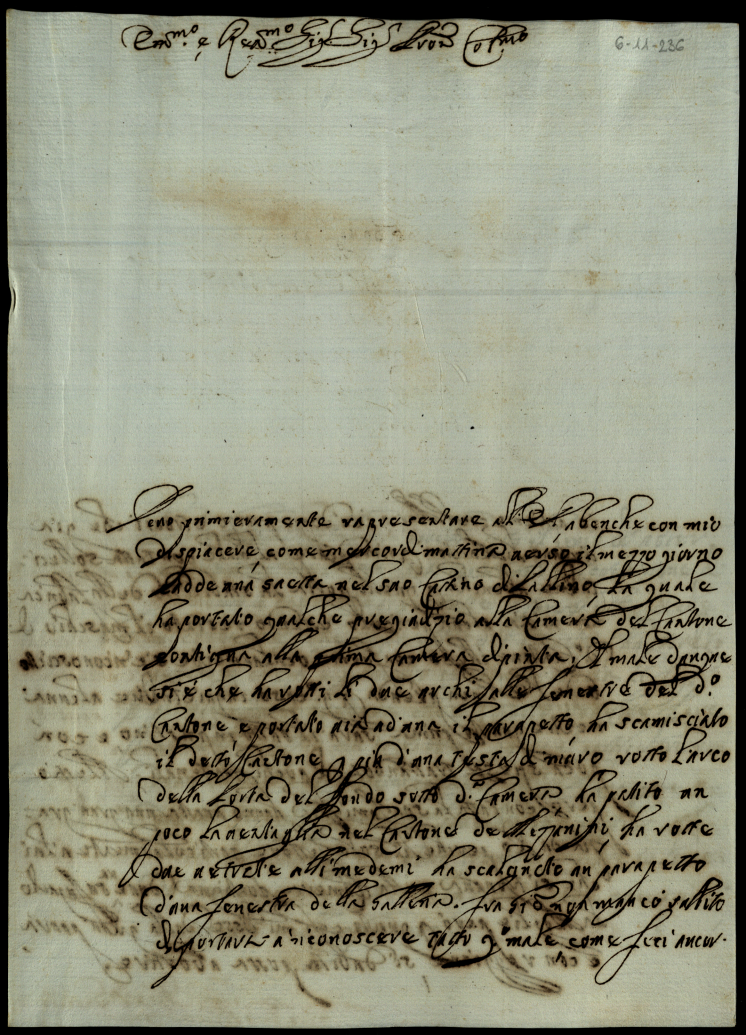 Em.mo e Rev.mo Sig.r Sig.r Pron Col.mo
6-11-236
Devo primieramente rapresentare all' E. V. abenche con mio
dispiacere come mercordi mattina verso il mezzo giorno
cadde una saetta nel suo Casino di la quale
ha portato qualche pregiudizio alla Camera del Cantone
contigua alla prima Camera dipinta, Il male dunque
si è che ha rotti li due archi alle fenestre del d.o
Cantone e portato via ad una il parapetto ha scamisciato
il detto Cantone p più d'una testa di muro rotto l'arco
della Porta del fondo sotto d.a Camera ha patito un
poco la ventaglia nel Cantone de Mezzanini ha rotte
due vetrate alli medemi ha scalgnato un parapetto
d'una fenestra della Galleria. fra Gio: non mancò subbito
di portarsi a riconoscere tutto q.o male come feci ancor.